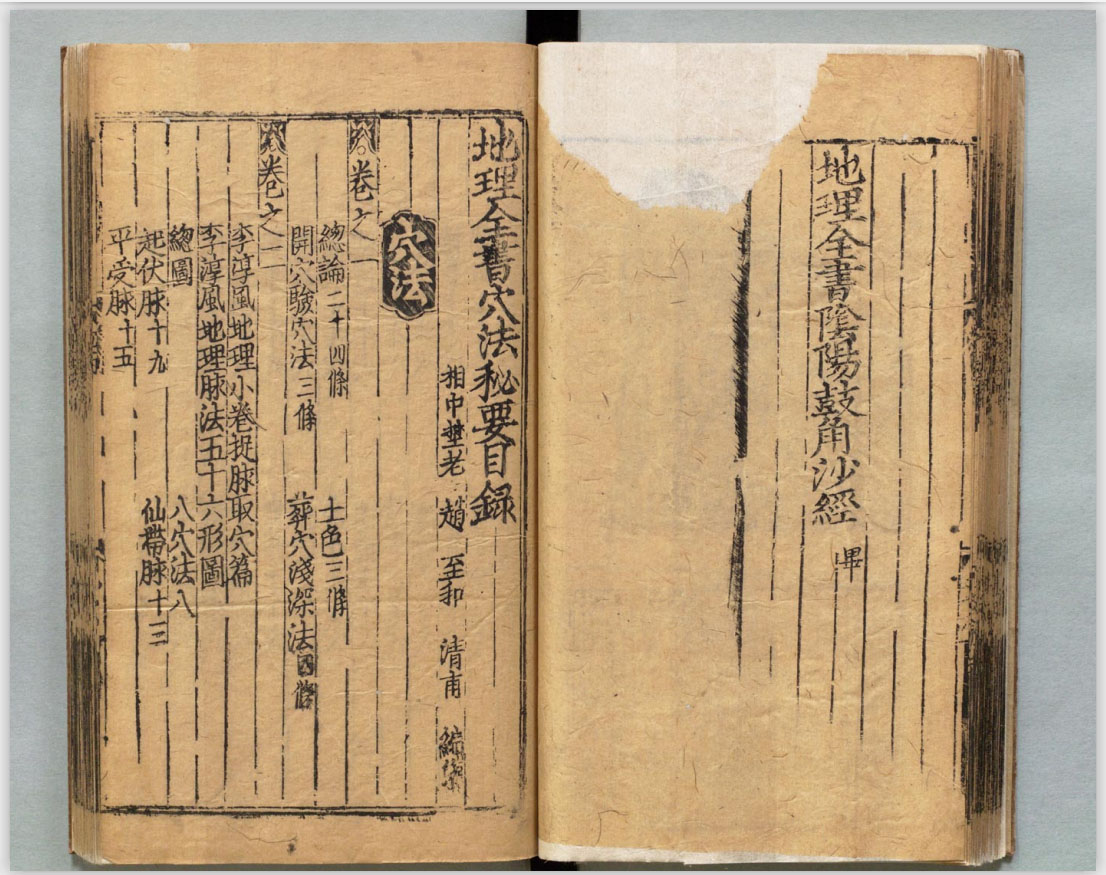 地理全書陰陽鼓角沙經 畢
地理全書穴法秘要目錄
相中埜老 趙 至和 清甫 編集
穴法
卷之一
總論二十四條 土色三條
開穴驗穴法三條 葬穴淺深法四條
卷之二
李淳風地理小卷捉脉取穴篇
李淳風地理脉法五十六形圖
總圖 八穴法八
起伏脉十九 仙帶脉十三
平受脉十五